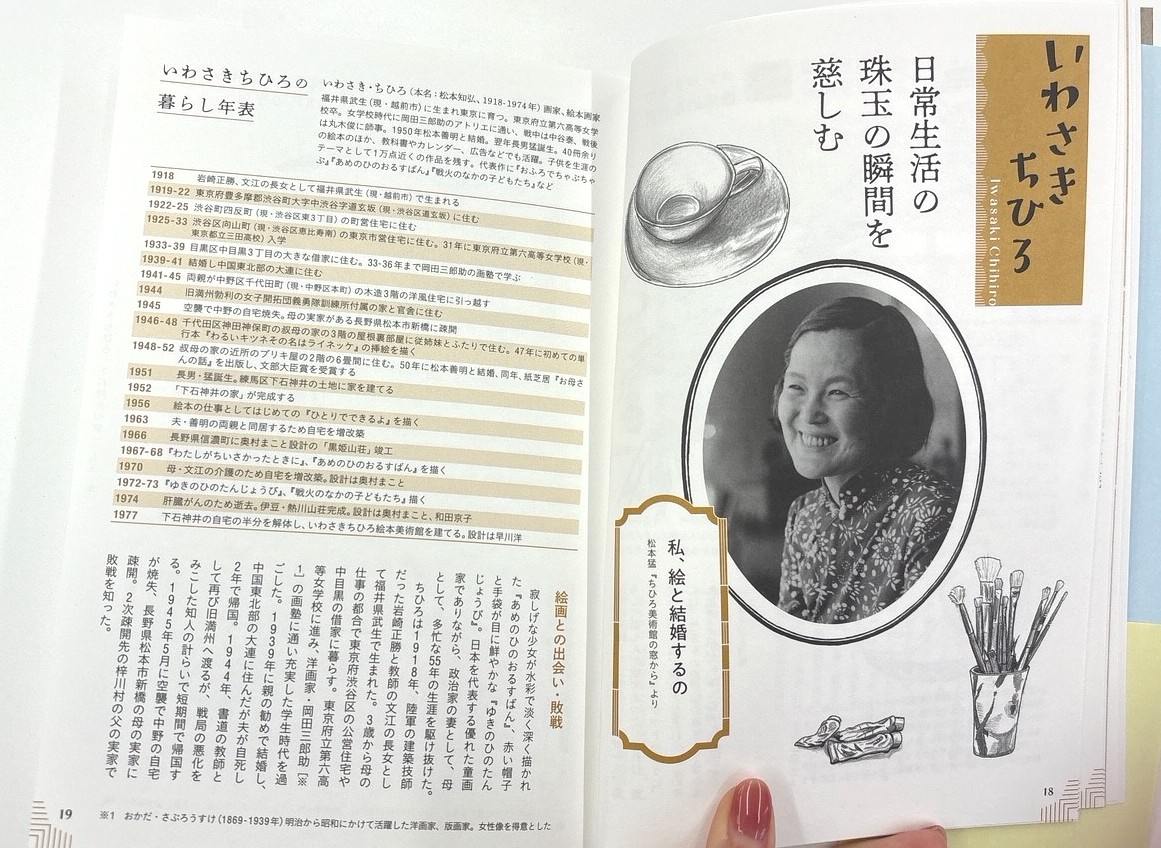 いわさき ちひろ
Iwasaki Chihiro
日常生活の
珠玉の瞬間を
慈しむ
私、絵と結婚するの
松本猛『ちひろ美術館の窓から』より
18
いわさきちひろの
暮らし年表
いわさき・ちひろ(本名:松本知弘、1918-1974年)画家、絵本画家
福井県武生(現・越前市)に生まれ東京に育つ。東京府立第六高等女学
校卒。女学校時代に岡田三郎助のアトリエに通い、戦中は中谷泰、戦後
は丸木俊に師事。1950年松本善明と結婚。翌年長男猛誕生。40冊余り
の絵本のほか、教科書やカレンダー、広告などでも活躍。子供を生涯の
テーマとして1万点近くの作品を残す。代表作に『おふろでちゃぷちゃ
ぷ』『あめのひのおるすばん』『戦火のなかの子どもたち』など
1918 岩崎正勝、文江の長女として福井県武生(現・越前市)で生まれる
1919-22 東京府豊多摩郡渋谷町大字中渋谷字道玄坂(現・渋谷区道玄坂)に住む
1922-25 渋谷町四反町(現・渋谷区東3丁目)の町営住宅に住む
1925-33 渋谷区向山町(現・渋谷区恵比寿南)の東京市営住宅に住む。31年に東京府立第六高等女学校(現・
東京都立三田高校)入学
1933-39 目黒区中目黒3丁目の大きな借家に住む。33-36年まで岡田三郎助の画塾で学ぶ
1939-41 結婚し中国東北部の大連に住む
1941-45 両親が中野区千代田町(現・中野区本町)の木造3階の洋風住宅に引っ越す
1944 旧満州勃利の女子開拓団義勇隊訓練所付属の家と官舎に住む
1945 空襲で中野の自宅焼失。母の実家がある長野県松本市新橋に疎開
1946-48 千代田区神田神保町の叔母の家の3階の屋根裏部屋に従姉妹とふたりで住む。47年に初めての単
行本『わるいキツネその名はライネッケ』の挿絵を描く
1948-52 叔母の家の近所のブリキ屋の2階の6畳間に住む。50年に松本善明と結婚、同年、紙芝居『お母さ
んの話』を出版し、文部大臣賞を受賞する
1951 長男・猛誕生。練馬区下石神井の土地に家を建てる
1952 「下石神井の家」が完成する
1956 絵本の仕事としてはじめての『ひとりでできるよ』を描く
1963 夫・善明の両親と同居するため自宅を増改築
1966 長野県信濃町に奥村まこと設計の「黒姫山荘」竣工
1967-68 『わたしがちいさかったときに』、『あめのひのおるすばん』を描く
1970 母・文江の介護のため自宅を増改築。設計は奥村まこと
1972-73 『ゆきのひのたんじょうび』、『戦火のなかの子どもたち』描く
1974 肝臓がんのため逝去。伊豆・熱川山荘完成。設計は奥村まこと、和田京子
1977 下石神井の自宅の半分を解体し、いわさきちひろ絵本美術館を建てる。設計は早川洋
絵画との出会い・敗戦
寂しげな少女が水彩で淡く深く描かれ
た『あめのひのおるすばん』、赤い帽子
と手袋が目に鮮やかな『ゆきのひのたん
じょうび』。日本を代表する優れた童画
家でありながら、政治家の妻として、母
として、多忙な55年の生涯を駆け抜けた。
ちひろは1918年、陸軍の建築技師
だった岩崎正勝と教師の文江の長女とし
て福井県武生で生まれた。3歳から母の
仕事の都合で東京府渋谷区の公営住宅や
中目黒の借家に暮らす。東京府立第六高
等女学校に進み、洋画家・岡田三郎助[※
1]の画塾に通い充実した学生時代を過
ごした。1939年に親の勧めで結婚し、
中国東北部の大連に住んだが夫が自死し
2年で帰国。1944年、書道の教師と
して再び旧満州へ渡るが、戦局の悪化を
みこした知人の計らいで短期間で帰国す
る。1945年5月に空襲で中野の自宅
が焼失、長野県松本市新橋の母の実家に
疎開。2次疎開先の梓川村の父の実家で
敗戦を知った。
※1 おかだ・さぶろうすけ(1869-1939年)明治から昭和にかけて活躍した洋画家、版画家。女性像を得意とした
19